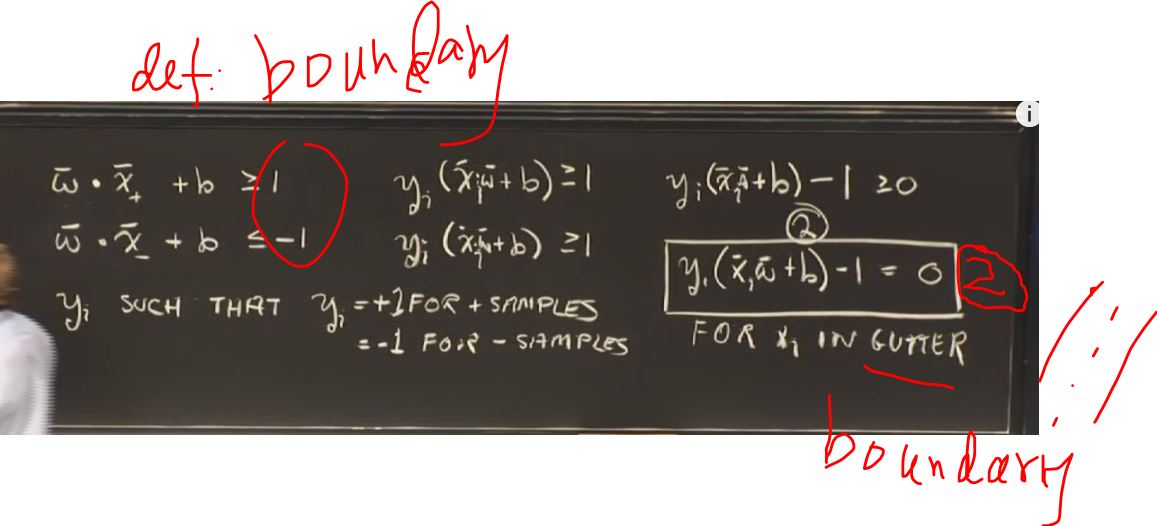 def: boundary
w̄ · x̄₊ + b ≥ 1
w̄ · x̄₋ + b ≤ -1
yᵢ SUCH THAT yᵢ = +1 FOR + SAMPLES
= -1 FOR - SAMPLES
yᵢ (x̄ᵢ w̄ + b) ≥ 1
yᵢ (x̄ᵢ w̄ + b) ≥ 1
yᵢ (x̄ᵢ w̄ + b) - 1 ≥ 0
2
yᵢ (x̄ᵢ w̄ + b) - 1 = 0 2
FOR xᵢ IN GUTTER
boundary
i